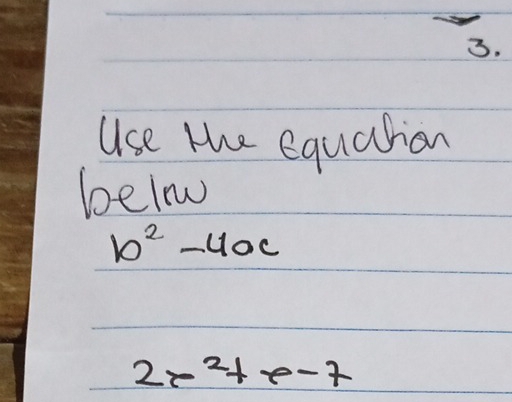 3.
Use the Equation
below
b² -4ac
2e²+e-7